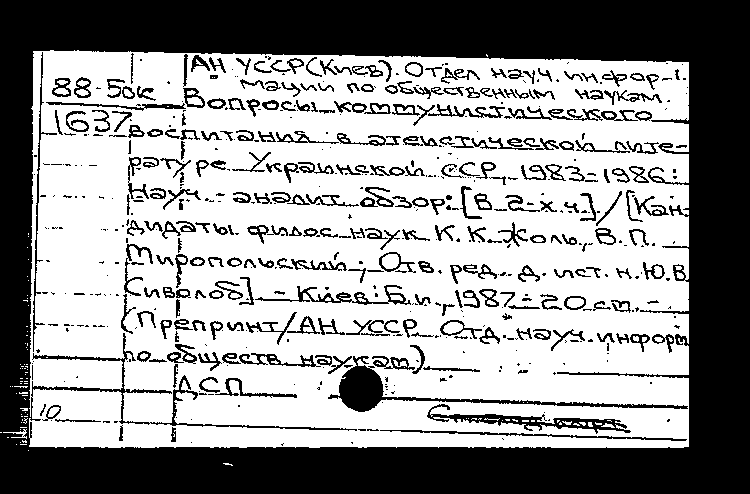 АН УССР (Киев). Отдел науч. инфор-
мации по общественным наукам.
88-50к
Вопросы коммунистического
1637
воспитания в атеистической лите-
ратуре Украинской ССР, 1983-1986:
Науч.-аналит обзор: [В 2-х ч.] / [Кан-
дидаты филос наук К. К. Жоль, В. П.
Миропольский; Отв. ред. д. ист. н. Ю. В
Сиволоб]. - Киев: Б. и., 1987 - 20 см. -
(Препринт / АН УССР Отд. науч. информ
по обществ наукам)
ДСП
10